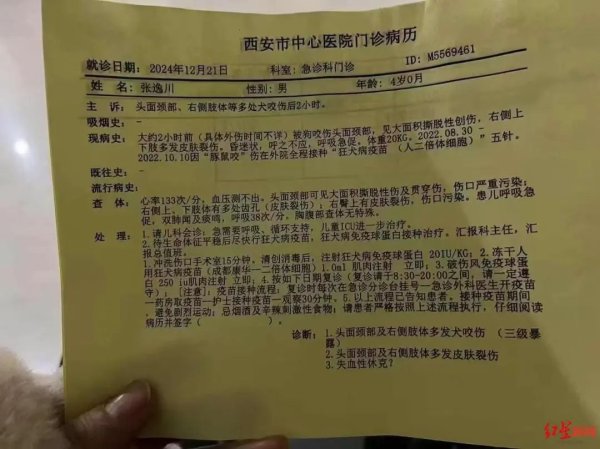 西安市中心医院门诊病历
ID: M5569461
就诊日期: 2024年12月21日 科室: 急诊科门诊
姓 名: 张逸川 性别: 男 年龄: 4岁0月
主 诉: 头面颈部、右侧肢体等多处犬咬伤后2小时。
吸烟史: -
现病史: 大约2小时前（具体外伤时间不详）被狗咬伤头面颈部，见大面积撕脱性创伤，右侧上
下肢多发皮肤裂伤。昏迷状，呼之不应，呼吸急促。体重20KG。2022.08.30 -
2022.10.10因“豚鼠咬”伤在外院全程接种“狂犬病疫苗 （人二倍体细胞）” 五针。
既往史: -
流行病史:
查 体: 心率133次/分，血压测不出。头面颈部可见大面积撕脱性伤及贯穿伤，伤口严重污染;
右侧上、下肢体有多处齿孔（皮肤裂伤）；右臀上有皮肤裂伤，伤口污染。患儿呼吸急
促，双肺闻及痰鸣，呼吸38次/分，胸腹部查体无特殊。
处 理: 1.请儿科会诊；急需要呼吸、循环支持，儿童ICU进一步治疗。
2.待生命体征平稳后尽快行狂犬病疫苗，狂犬病免疫球蛋白接种治疗。汇报科主任，汇
报总值班。
1.冲洗伤口手术室15分钟，清创消毒后，注射狂犬病免疫球蛋白 20IU/KG; 2.冻干人
用狂犬病疫苗（成都康华—二倍体细胞）1.0ml 肌肉注射 立即; 3.破伤风免疫球蛋
白 250 iu肌肉注射 立即; 4.按如下日期复诊（复诊请于8:30-20:00之间，请一定遵
守）; [注意]: 疫苗接种流程: 复诊时每次在急诊分诊台挂号一急诊外科医生开疫苗
一药房取疫苗一护士接种疫苗一观察30分钟。5.以上流程已告知患者，接种疫苗期间
，避免剧烈运动; 忌烟酒及辛辣刺激性食物; 请患者严格按照上述流程执行，仔细阅读
病历并签字（ ）。
诊断: 1.头面颈部及右侧肢体多发犬咬伤 （三级暴
露）
2.头面颈部及右侧肢体多发皮肤裂伤
3.失血性休克?
红星新闻